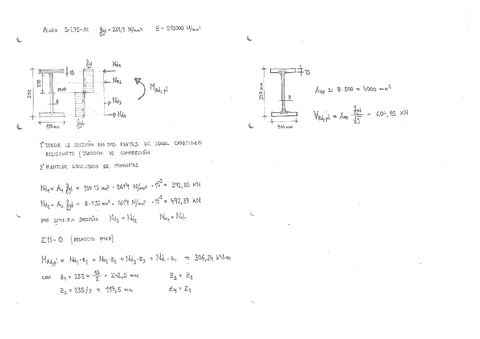 ACERO S-275-JR fyd = 261,9 N/mm² E = 210000 N/mm²
fyd
Nd1
Nd2
Nd3
Nd4
MRd,pl
15
235
8
100 mm
fyd
1º DIVIDIR LA SECCIÓN EN DOS PARTES DE IGUAL CAPACIDAD
RESISTENTE / TRACCIÓN VS COMPRESIÓN
2º PLANTEAR EQUILIBRIO DE MOMENTOS
Nd1 = A1 fyd = 100·15 mm² · 261,9 N/mm² · 10⁻³ = 392,85 kN
Nd2 = A2 fyd = 8·235 mm² · 261,9 N/mm² · 10⁻³ = 492,37 kN
POR SIMETRÍA SECCIÓN Nd3 = Nd2 Nd4 = Nd1
ΣM=0 (RESPECTO
MRd,pl = Nd1·z1 + Nd2·z2 + Nd3·z3 + Nd4·z4 = 306,24 kN·m
CON z1 = 235 + 15/2 = 242,5 mm z3 = z2
z2 = 235/2 = 117,5 mm z4 = z1
15
8
100 mm
AV ≃ 8·500 = 4000 mm²
VRd,pl = AV fyd/√3 = 604,83 kN